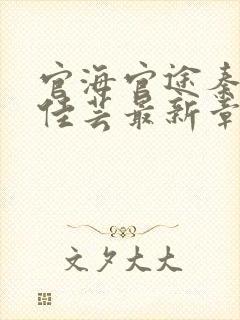 官海官途秦
佳芸最新章
文夕大大